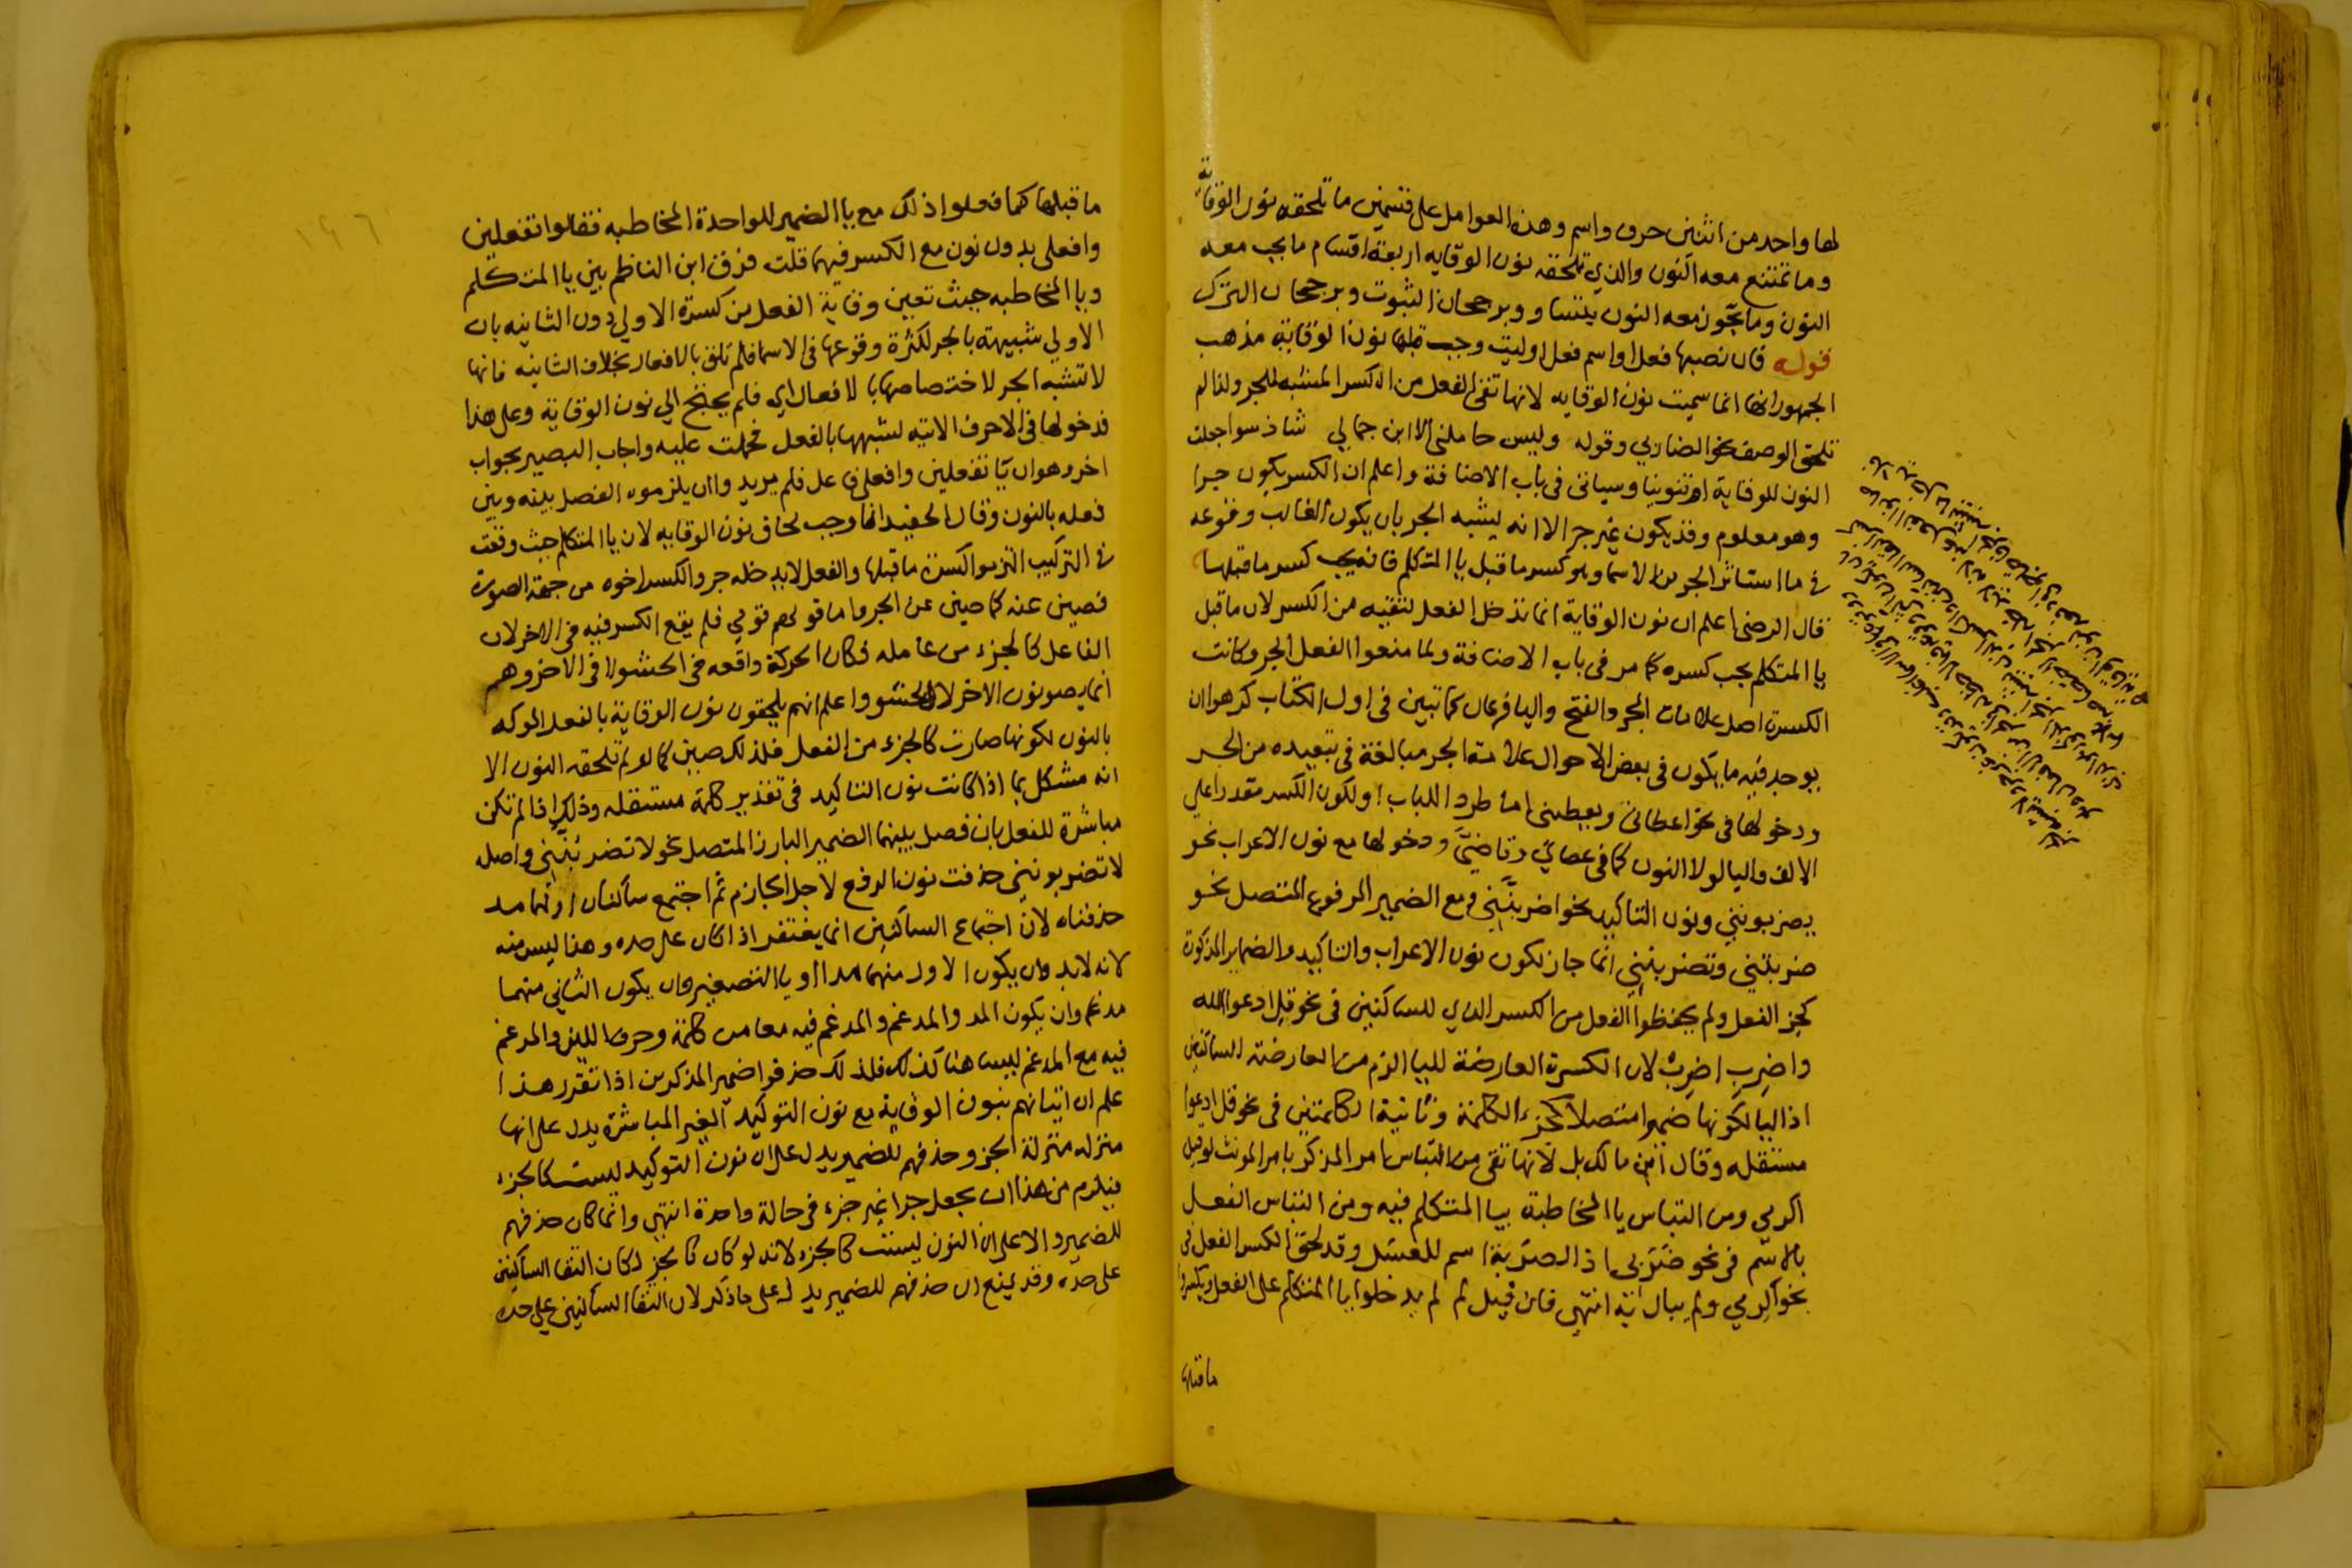 لها واحد من اثنين حرف واسم وهذه العوامل على قسمين ما تلحقه نون الوقاية
وما تمتنع معه النون والذي تلحقه نون الوقايه اربعة اقسام ما يجب معه
النون وما يجوز معه النون بتساو وبرجحان الثبوت وبرجحان الترك
قوله فان نصبها فعل او اسم فعل او ليت وجب قبلها نون الوقاية مذهب
الجمهور انها انما سميت نون الوقايه لانها تقى الفعل من الكسر المشبه للجر ولذا لم
تلحق الوصف نحو الضاربي وقوله وليس حاملنى الا ابن حمالي شاذ سوا جعلت
النون للوقاية او تنوينا وسياتى فى باب الاضافة واعلم ان الكسر يكون جرا
وهو معلوم وقد يكون غير جر الا انه يشبه الجر بان يكون الغالب وقوعه
فى ما استاثر الجر من الاسما وهو كسر ما قبل يا المتكلم فانه يجب كسر ما قبلها
قال الرضى اعلم ان نون الوقاية انما تدخل الفعل لتقيه من الكسر لان ما قبل
يا المتكلم يجب كسره كما مر فى باب الاضافة ولما منعوا الفعل الجر وكانت
الكسرة اصل علامات الجر والفتح واليا فرعان كما تبين فى اول الكتاب كرهوا ان
يوجد فيه ما يكون فى بعض الاحوال علامة الجر مبالغة فى تبعيده من الجر
ودخولها فى نحو اعطانى ويعطينى اما طردا للباب او لكون الكسر مقدرا على
الالف واليا لولا النون كما فى عصاي وقاضيّ ودخولها مع نون الاعراب نحو
يضربوننى ونون التاكيد نحو اضربنّنى ومع الضمير المرفوع المتصل نحو
ضربتنى وتضربيننى انما جاز لكون نون الاعراب والتاكيد والضماير المذكورة
كجز الفعل ولم يحفظوا الفعل من الكسر الذي للساكنين فى نحو قل ادعوا الله
واضرب اضرب لان الكسرة العارضة لليا الزم من العارضة للساكنين
اذ اليا لكونها ضميرا متصلا كجزء الكلمة وثانية الكلمتين فى نحو قل ادعوا
مستقله وقال ابن مالك بل لانها تقى من التباس امر المذكر بامر المونث لو قيل
اكرمي ومن التباس يا المخاطبة بيا المتكلم فيه ومن التباس الفعل
بالاسم فى نحو ضربي اذ الضرب اسم للعسل وقد لحق الكسر الفعل فى
نحو اكرمي ولم يبال به انتهى فان قيل لم لم يدخلوا يا المتكلم على الفعل ويكسروا
ما قبلها
ما قبلها كما فعلوا ذلك مع يا الضمير للواحدة المخاطبه فقالوا تفعلين
وافعلى بدون نون مع الكسر فيهما قلت فرق ابن الناظم بين يا المتكلم
ويا المخاطبه حيث تعين وقاية الفعل من كسرة الاولى دون الثانيه بان
الاولى شبيهة بالجر لكثرة وقوعها فى الاسما فلم تلق بالافعال بخلاف الثانيه فانها
لا تشبه الجر لاختصاصها بالافعال اي فلم يحتج الى نون الوقاية وعلى هذا
فدخولها فى الاحرف الاتيه لشبهها بالفعل فحملت عليه واجاب البصير بجواب
اخر وهو ان يا تفعلين وافعلى فاعل فلم يريدوا ان يلزموه الفصل بينه وبين
فعله بالنون وقال الحفيد انما وجب لحاق نون الوقايه لان يا المتكلم حيث وقعت
فى التركيب التزموا كسرة ما قبلها والفعل لا يدخله جر والكسر اخوه من جهة الصورة
فصين عنه كما صين عن الجر واما قولهم قومي فلم يقع الكسر فيه فى الاخر لان
الفاعل كالجزء من عامله فكان الحركة واقعه فى الحشو لا فى الاخر وهم
انما يصونون الاخر لا الحشو واعلم انهم يلحقون نون الوقاية بالفعل الموكد
بالنون لكونها صارت كالجزء من الفعل فلذلك صين كما لو لم تلحقه النون الا
انه مشكل بما اذا كانت نون التاكيد فى تقدير كلمة مستقله وذلك اذا لم تكن
مباشرة للفعل بان فصل بينهما الضمير البارز المتصل نحو لا تضربُنّنى واصله
لا تضربوننى حذفت نون الرفع لاجل الجازم ثم اجتمع ساكنان اولهما مد
حذفناه لان اجتماع الساكنين انما يغتفر اذا كان على حده وهنا ليس منه
لانه لابد وان يكون الاول منهما مدا او يا التصغير وان يكون الثانى منهما
مدغما وان يكون المد والمدغم والمدغم فيه معا من كلمة وحرف اللين والمدغم
فيه مع المدغم ليسا هنا كذلك فلذلك حذفوا ضمير المذكرين اذا تقرر هذا
علم ان اتيانهم بنون الوقاية مع نون التوكيد الغير المباشرة يدل على انها
منزله منزلة الجز وحذفهم للضمير يدل على ان نون التوكيد ليست كالجزء
فيلزم من هذا ان يجعل جزا غير جزء فى حالة واحدة انتهى وانما كان حذفهم
للضمير دالا على ان النون ليست كالجزء لانه لو كان كالجز لكان التقا الساكنين
على حده وقد يمنع ان حذفهم للضمير يدل على ما ذكر لان التقا الساكنين على حده